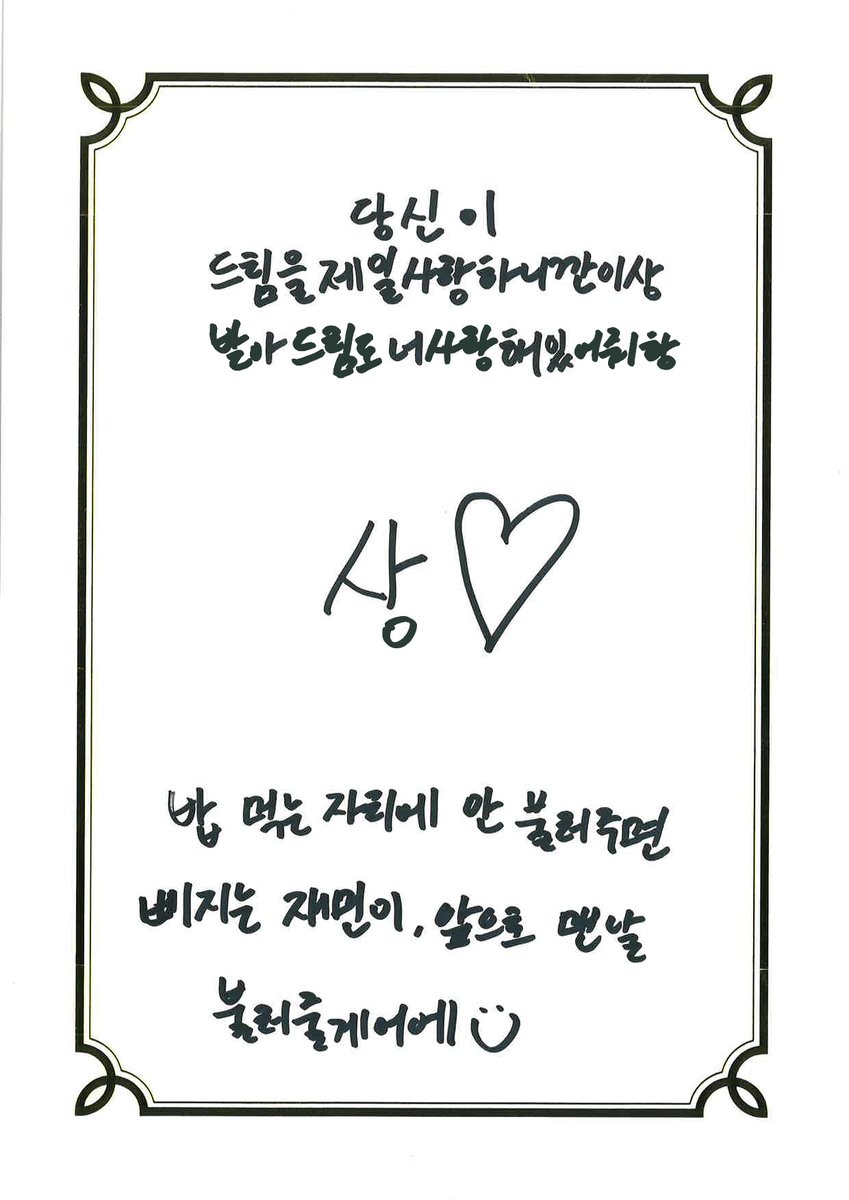 당신이
드림을 제일 사랑하니깐 이상
받아 드림도 너 사랑해 있어
상♡
밥 먹는 자리에 안 불러주면
삐지는 재민이, 앞으로 맨날
불러줄게